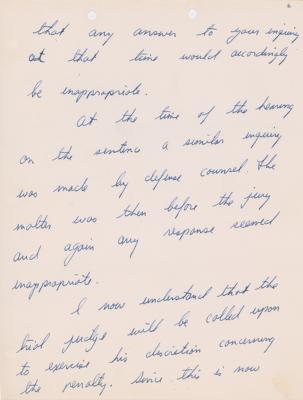 that any answer to your inquiry
at that time would accordingly
be inappropriate.
At the time of the hearing
on the sentence a similar inquiry
was made by defense counsel. The
matter was then before the jury
and again any response seemed
inappropriate.
I now understand that the
trial judge will be called upon
to exercise his discretion concerning
the penalty. Since this is now